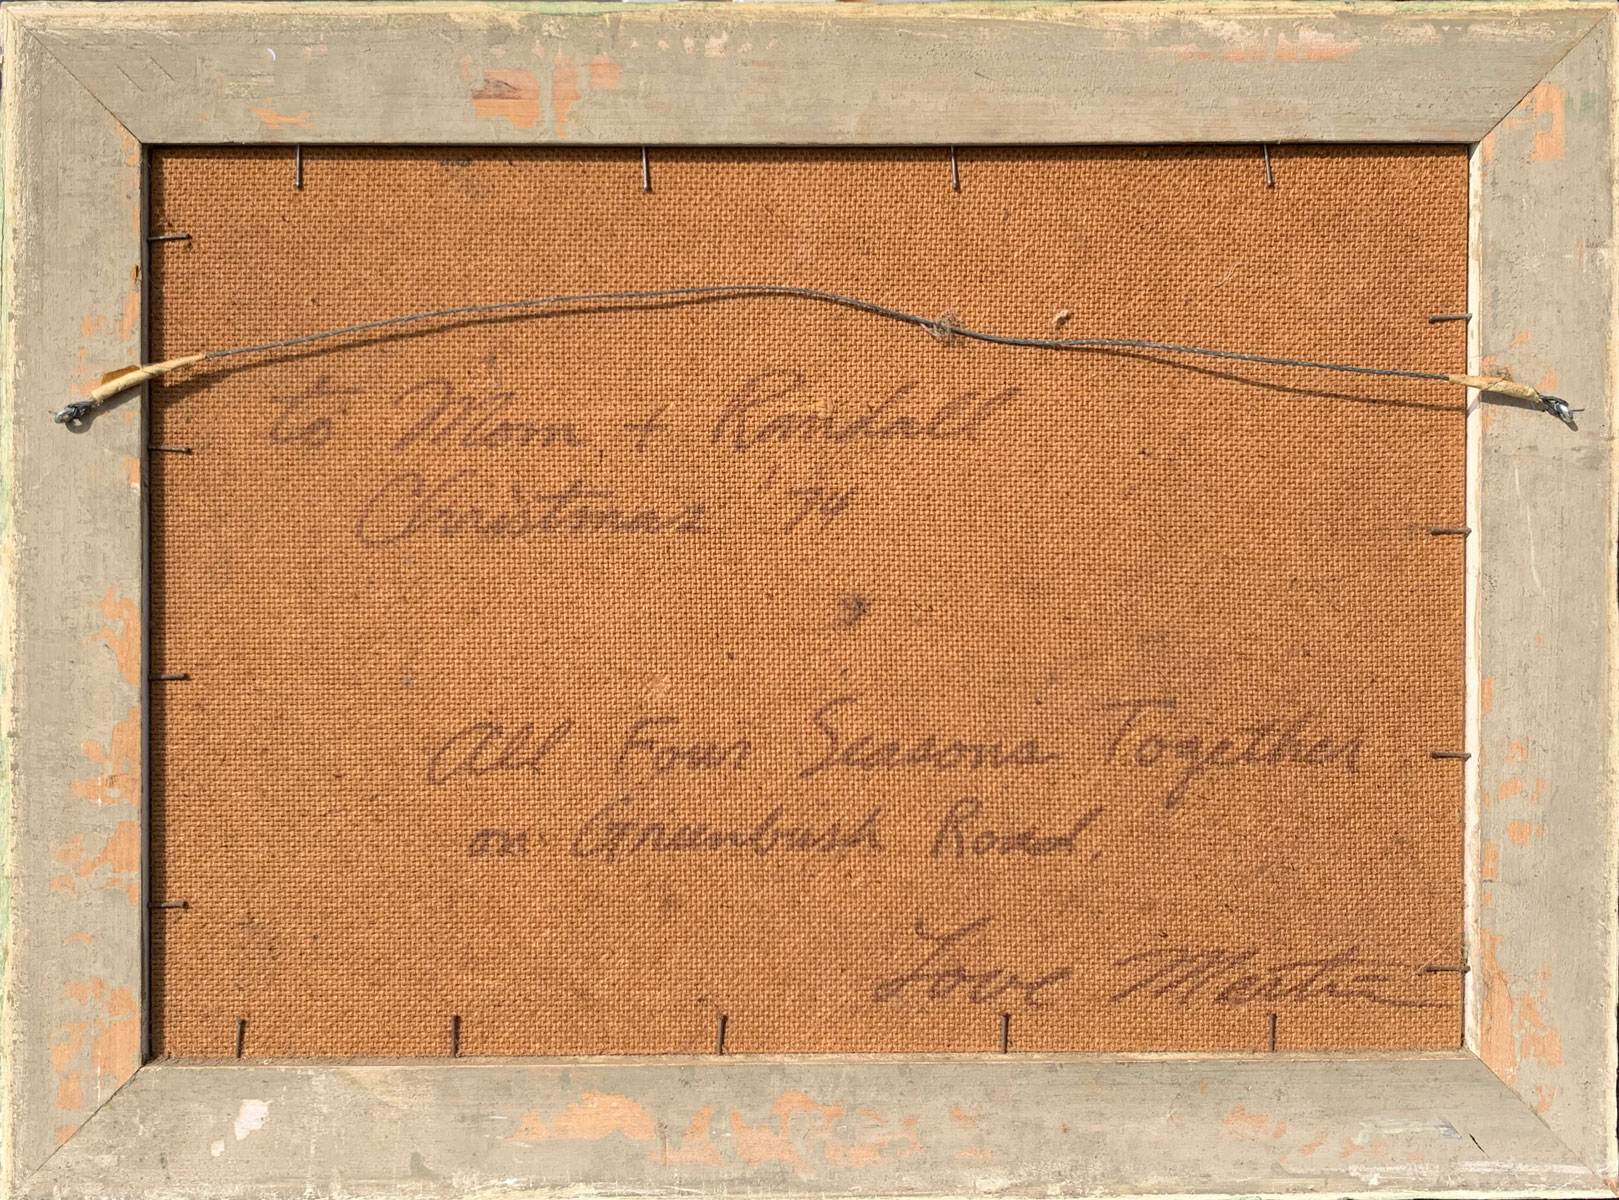 to Mom + Randall
Christmas '74
All Four Seasons Together
on Greenbush Road,
Love Martin